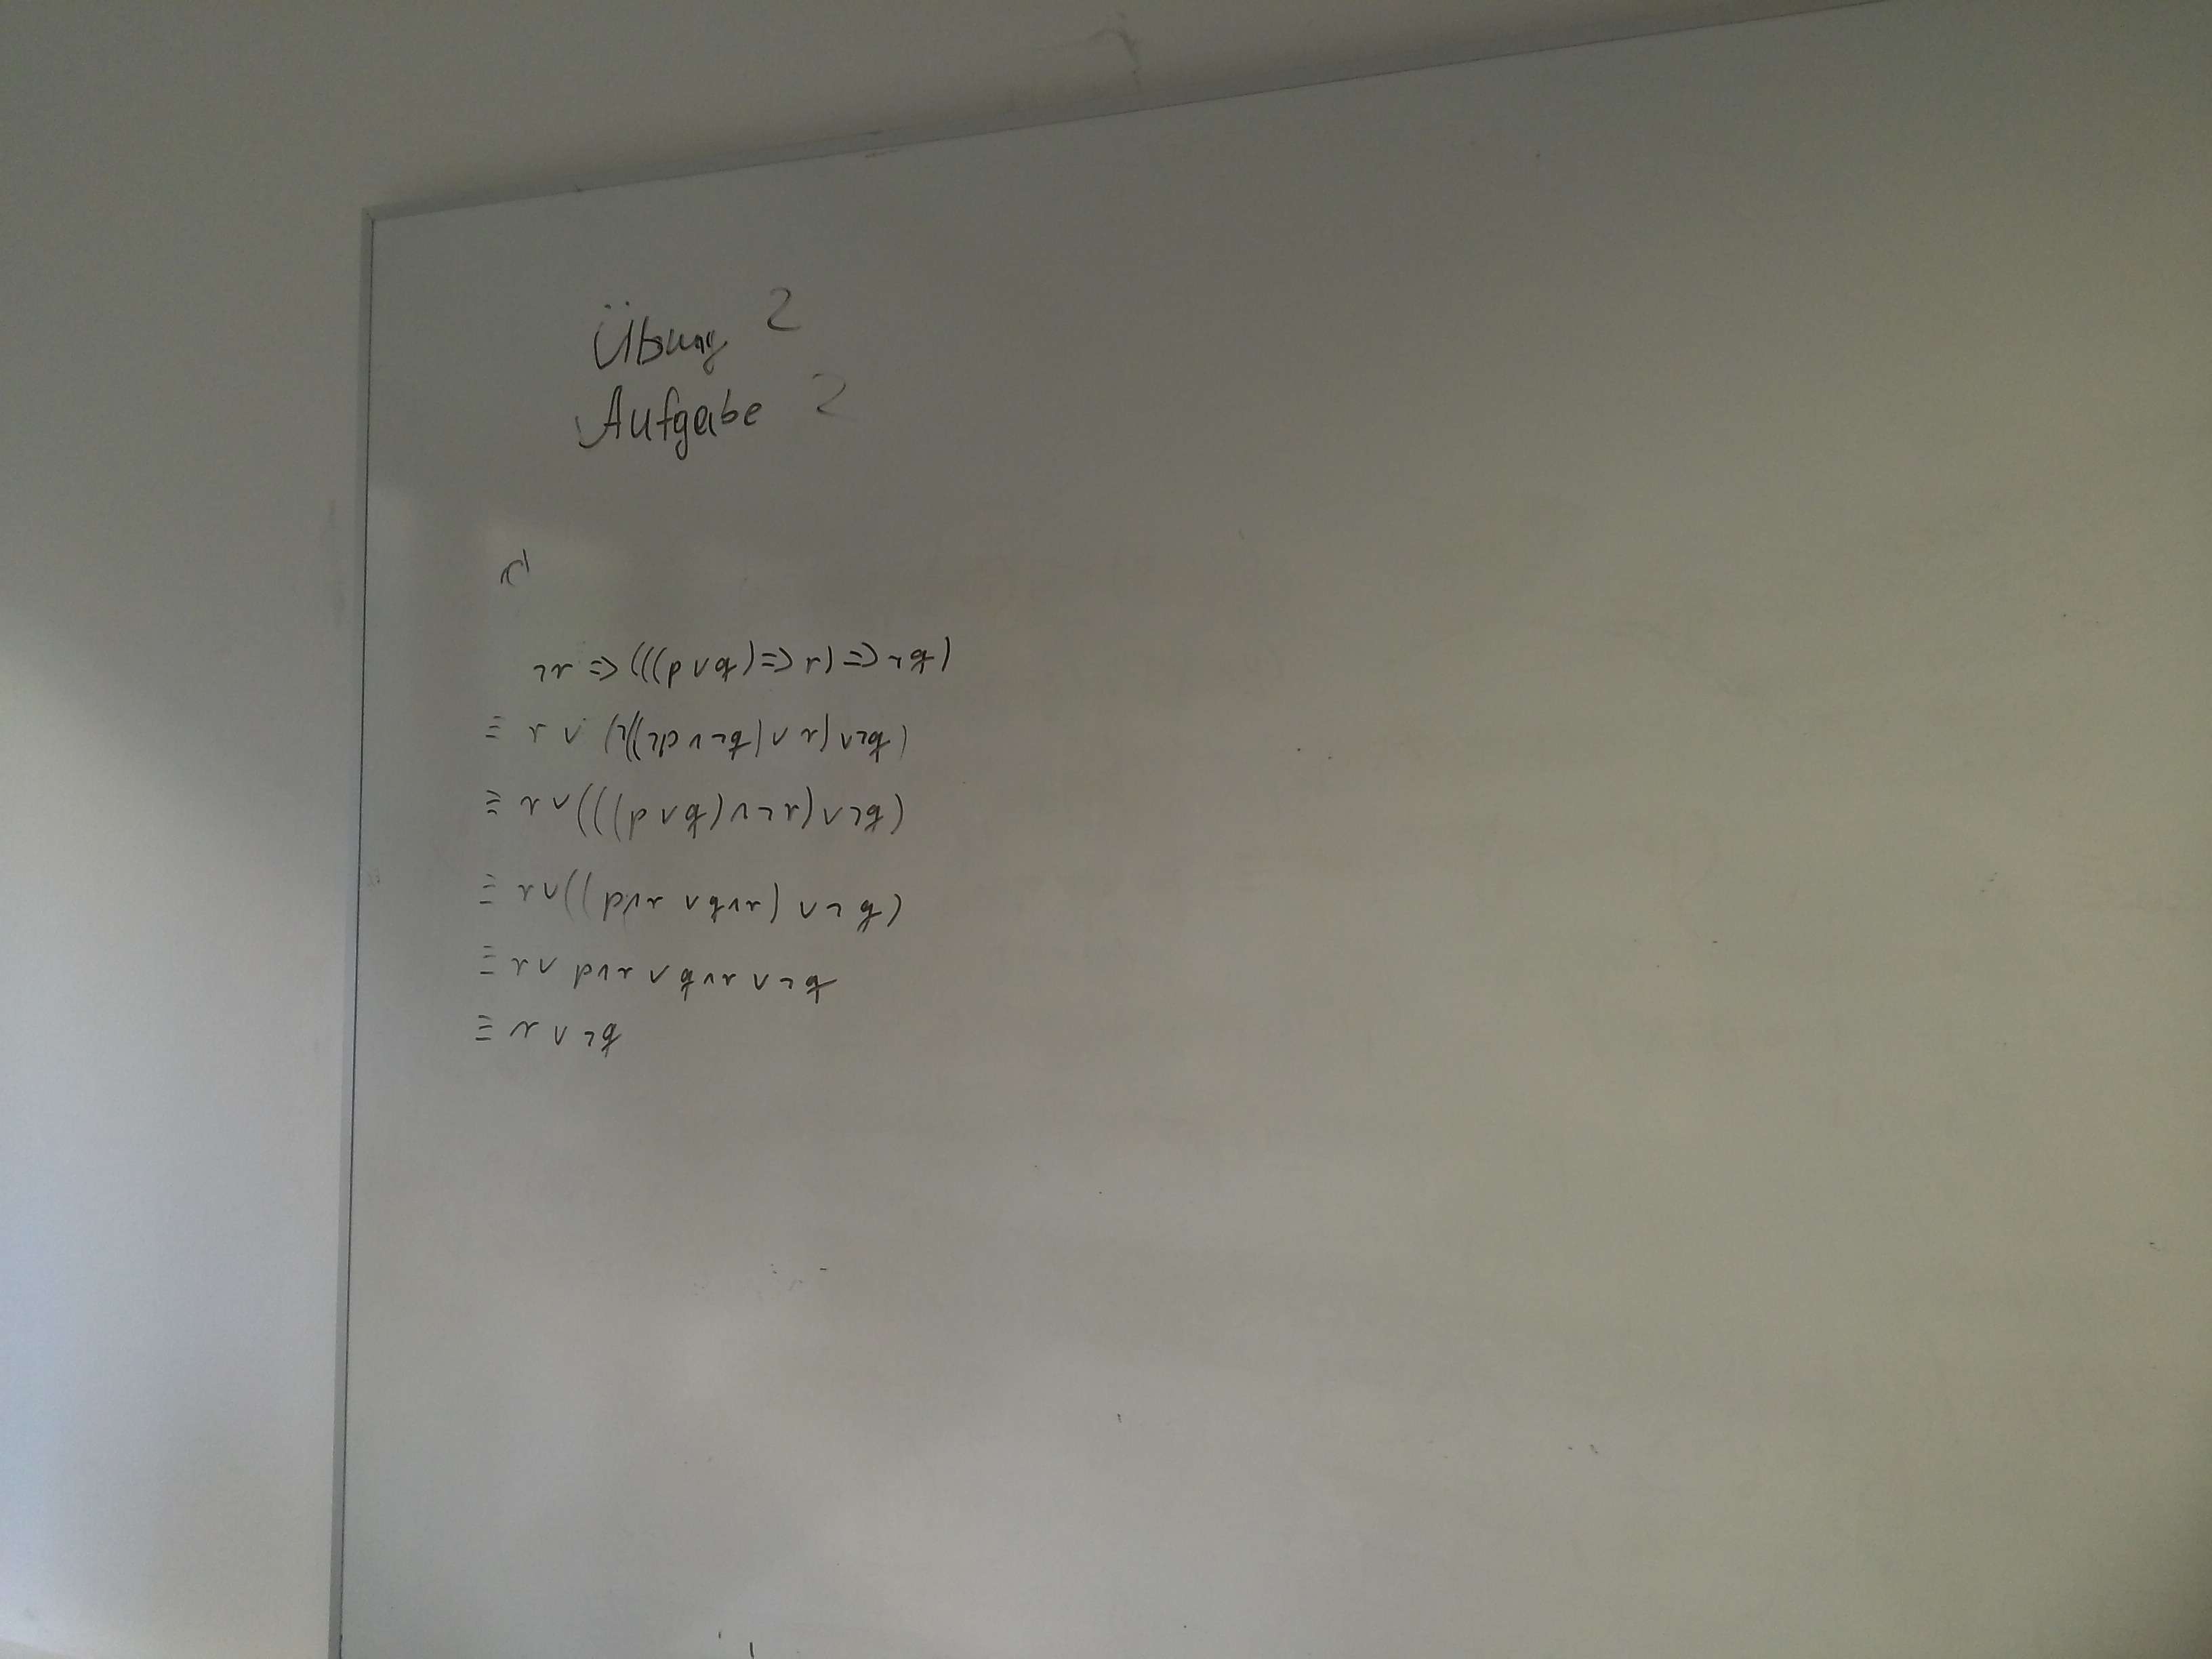 Übung 2
Aufgabe 2
¬r => (((p ∨ q) => r) => ¬q)
≡ r ∨ (¬((¬p ∧ ¬q) ∨ r) ∨ ¬q)
≡ r ∨ (((p ∨ q) ∧ ¬r) ∨ ¬q)
≡ r ∨ ((p ∧ r ∨ q ∧ r) ∨ ¬q)
≡ r ∨ p ∧ r ∨ q ∧ r ∨ ¬q
≡ r ∨ ¬q